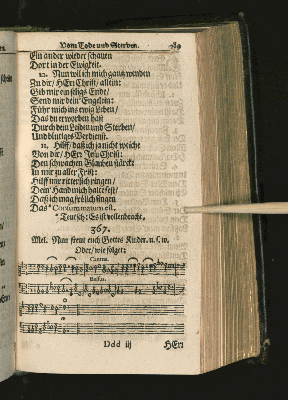 Vom Tode und Sterben. 789
Ein ander wieder schauen
Dort in der Ewigkeit.
10. Nun will ich mich gantz wenden
Zu dir / HErr Christ / allein:
Gib mir ein seligs Ende /
Send mir dein' Engelein:
Führ mich ins ewig Leben /
Das du erworben hast
Durch dein Leiden und Sterben /
Und blutiges Verdienst.
11. Hilff / daß ich ja nicht weiche
Von dir / HErr Jesu Christ:
Den schwachen Glauben stärcke
In mir zu aller Frist:
Hilff mir ritterlich ringen /
Dein' Hand mich halte fest /
Daß ich mag frölich singen
Das * Consummatum est.
* Teutsch: Es ist vollenbracht.
367.
Mel. Nun freut euch Gottes Kinder. u. s. w.
Oder / wie folget:
Cantus.
Bassus.
Ddd iij HErr